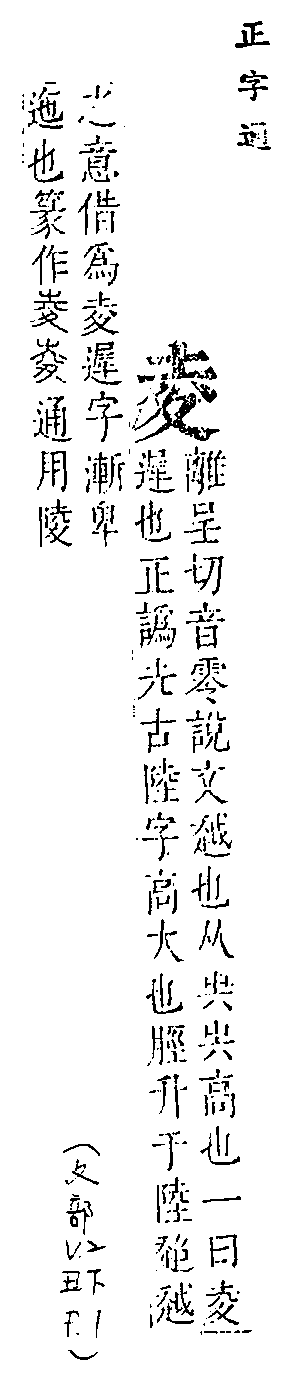 正字通
夌
離呈切音零說文越也从𡴆𡴆高也一曰夌
遲也正譌𡴆古陸字高大也脛升于陸䧟越
之意借為夌遲字漸卑
迤也篆作夌夌通用陵
(夊部
丑下
P.1)